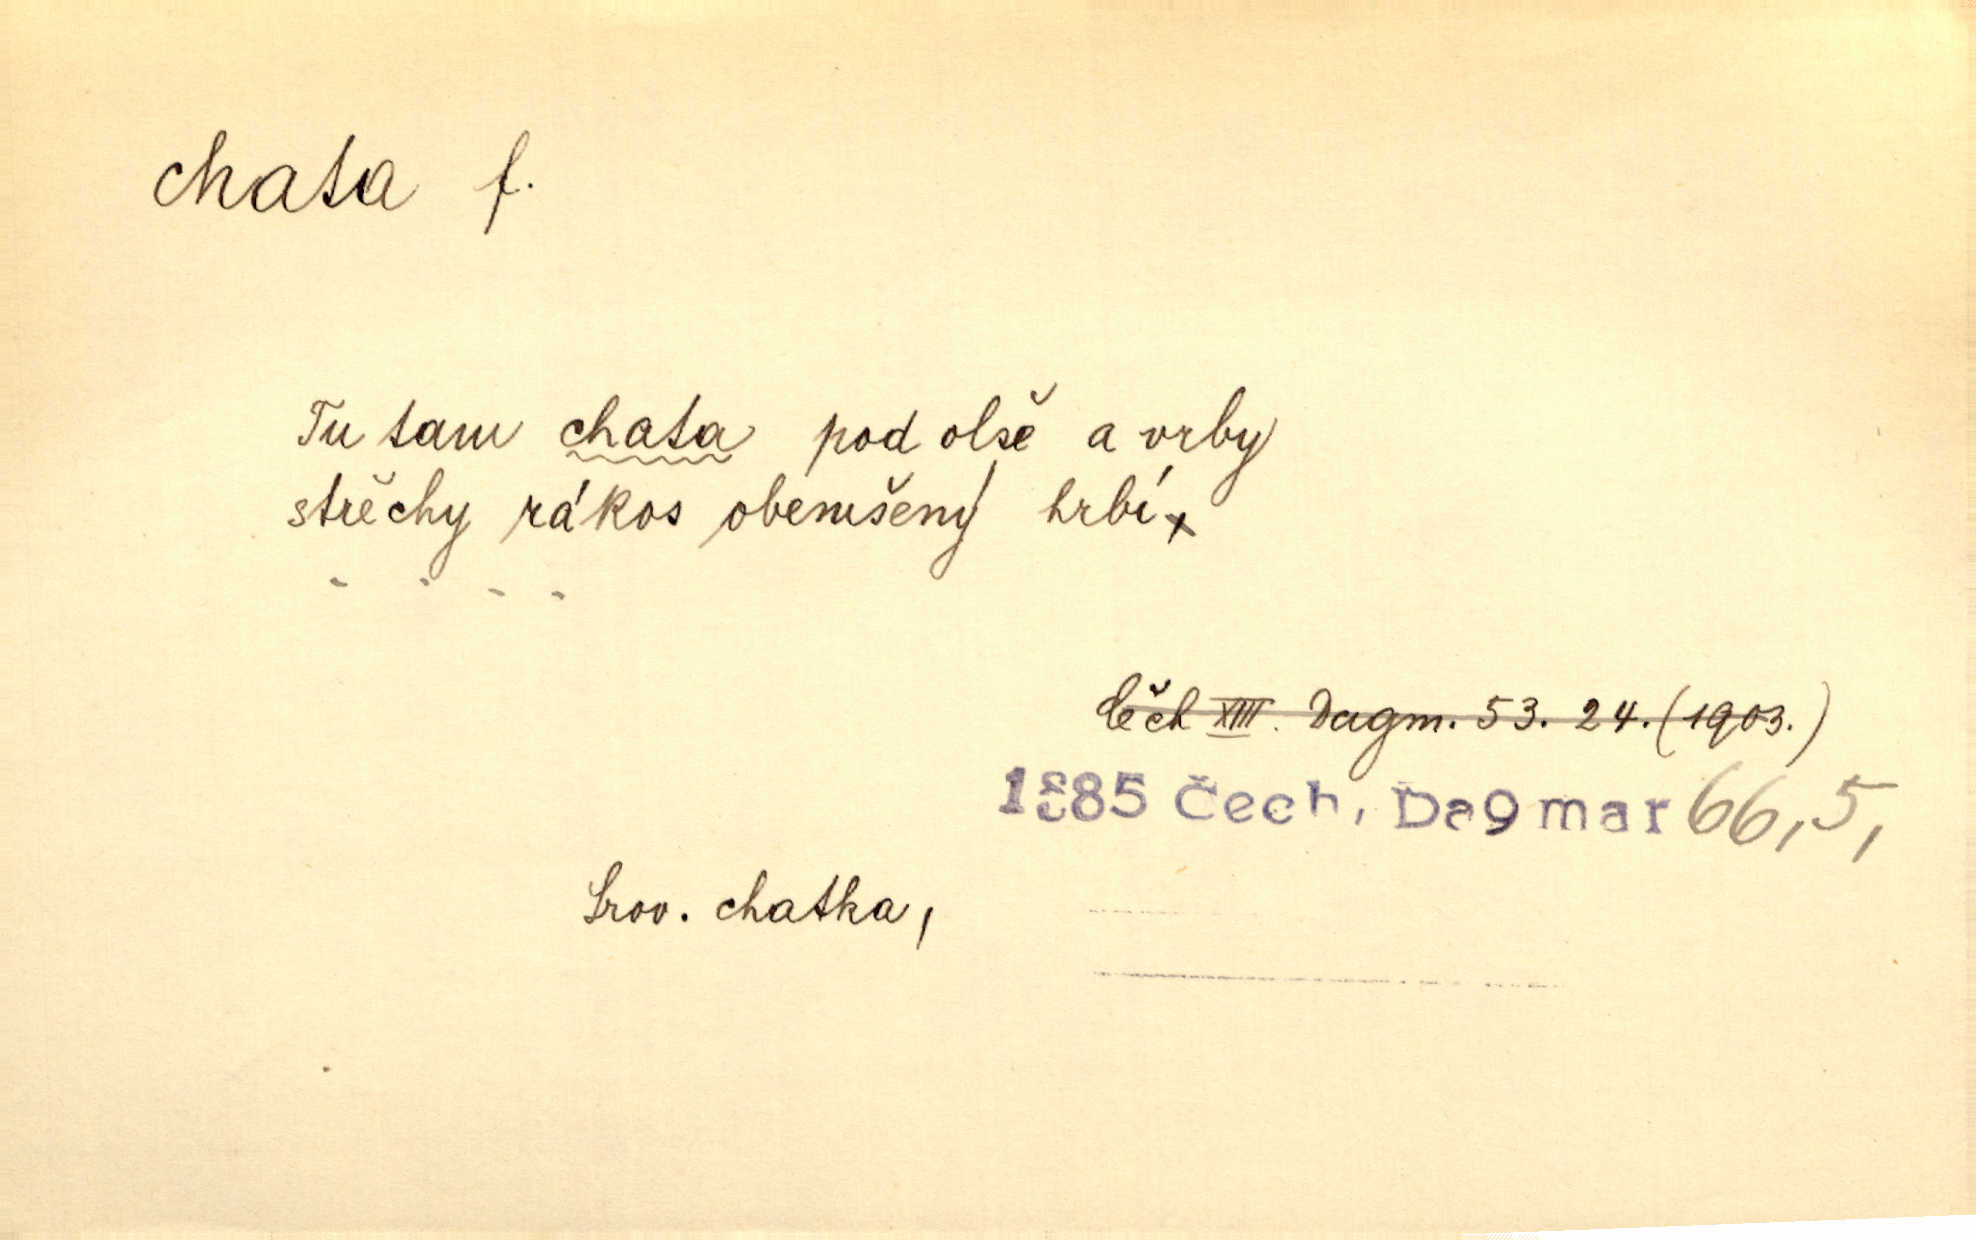 chata f.
Tu tam chata pod olše a vrby
střěchy rákos obemšený hrbí,
Čěch XIII. Dagm. 53. 24. (1903.)
1885 Čech, Dagmar 66,5,
Srov. chatka,